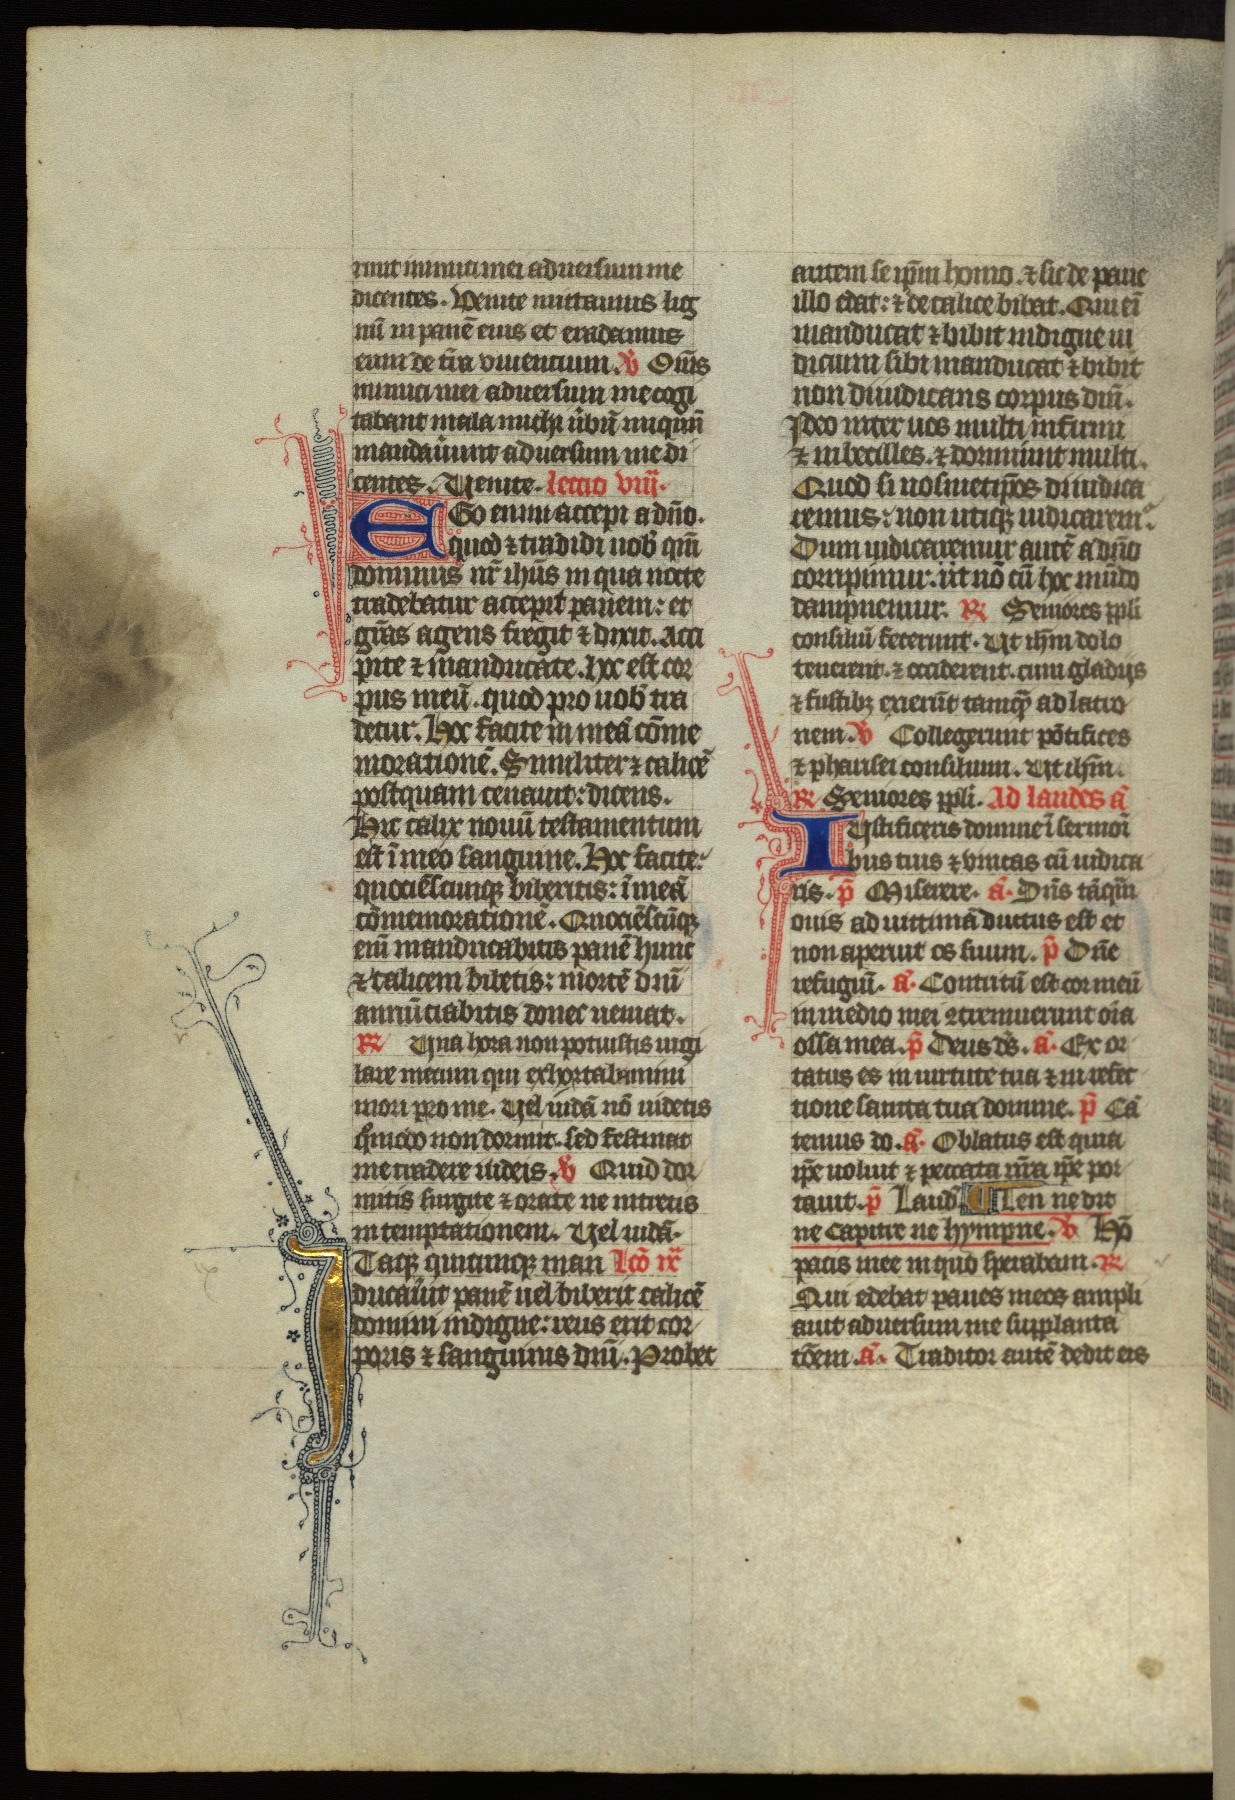 runt inimici mei aduersum me
dicentes. Venite mittamus lig
nū in panē eius et eradamus
eum de t̄ra viuentium. V̄ Om̄s
inimici mei aduersum me cogi
tabant mala michi ūbū iniqūm
mandauūnt aduersum me di
centes. Uenite. lectio viij.
EGo enim accepi a dn̄o.
quod ⁊ tradidi uob̄ qm̄
dominus nr̄ ih̄us in qua nocte
tradebatur accepit panem: et
grās agens fregit ⁊ dixit. Acci
pite ⁊ manducate. hoc est cor
pus meū. quod pro uob̄ tra
detur. Hoc facite in meā cōme
morationē. Similiter ⁊ calicē
postquam cenauit: dicens.
Hic calix nouū testamentum
est ī meo sanguine. Hoc facite:
quociēscunqꝫ biberitis: ī meā
cōmemorationē. Quociēscūqꝫ
enī manducabitis panē hunc
⁊ calicem bibetis: mortē dn̄i
annūciabitis donec ueniat.
R̄ Una hora non potuistis uigi
lare mecum qui exhortabamini
mori pro me. Uel iudā nō uidetis
q̄modo non dormit. sed festinat
me tradere iudeis. V̄ Quid dor
mitis surgite ⁊ orate ne intretis
in temptationem. Uel iudā.
ITaqꝫ quicunqꝫ man lc̄o ix
ducaūit panē uel biberit calicē
domini indigne: reus erit cor
poris ⁊ sanguinis dn̄i. Probet
autem se ip̄m homo. ⁊ sic de pane
illo edat: ⁊ de calice bibat. Qui eī
manducat ⁊ bibit indigne iu
dicium sibi manducat ⁊ bibit
non diiudicans corpus dn̄i.
Ideo inter uos multi infirmi
⁊ inbecilles. ⁊ dormiunt multi.
Quod si nosmetip̄os diiudica
remus: non utiqꝫ iudicarem᷒.
Dum iudicaremur autē a dn̄o
corripimur. ut nō cū hoc mūdo
dampnemur. R̄ Seniores ppli
consiliū fecerunt. Ut ih̄m dolo
tenerent. ⁊ occiderent. cum gladijs
⁊ fustibꝫ exierūt tamqꝫ ad latro
nem. V̄ Collegerunt pōtifices
⁊ pharisei consilium. Ut ih̄m.
R̄ Seniores ppli. Ad laudes ā
IUstificeris domine ī sermōi
bus tuis ⁊ vincas cū iudica
ris. p̄ Miserere. ā. Dn̄s tāqūm
ouis ad uictimā ductus est et
non aperuit os suum. p̄ Dn̄e
refugiū. ā. Contritū est cor meū
in medio mei ꝯtremuerunt oīa
ossa mea. p̄ Deus ds̄. ā. Exor
tatus es in uirtute tua ⁊ in refec
tione sancta tua domine. p̄ Cā
temus do. ā. Oblatus est quia
ip̄e uoluit ⁊ peccata nr̄a ip̄e por
tauit. p̄ Laud̄. Len ne dit
ne capitre ne hympne. V̄ Hō
pacis mee in quo sperabam. R̄
Qui edebat panes meos ampli
auit aduersum me supplanta
tōem. ā. Traditor autē dedit eis